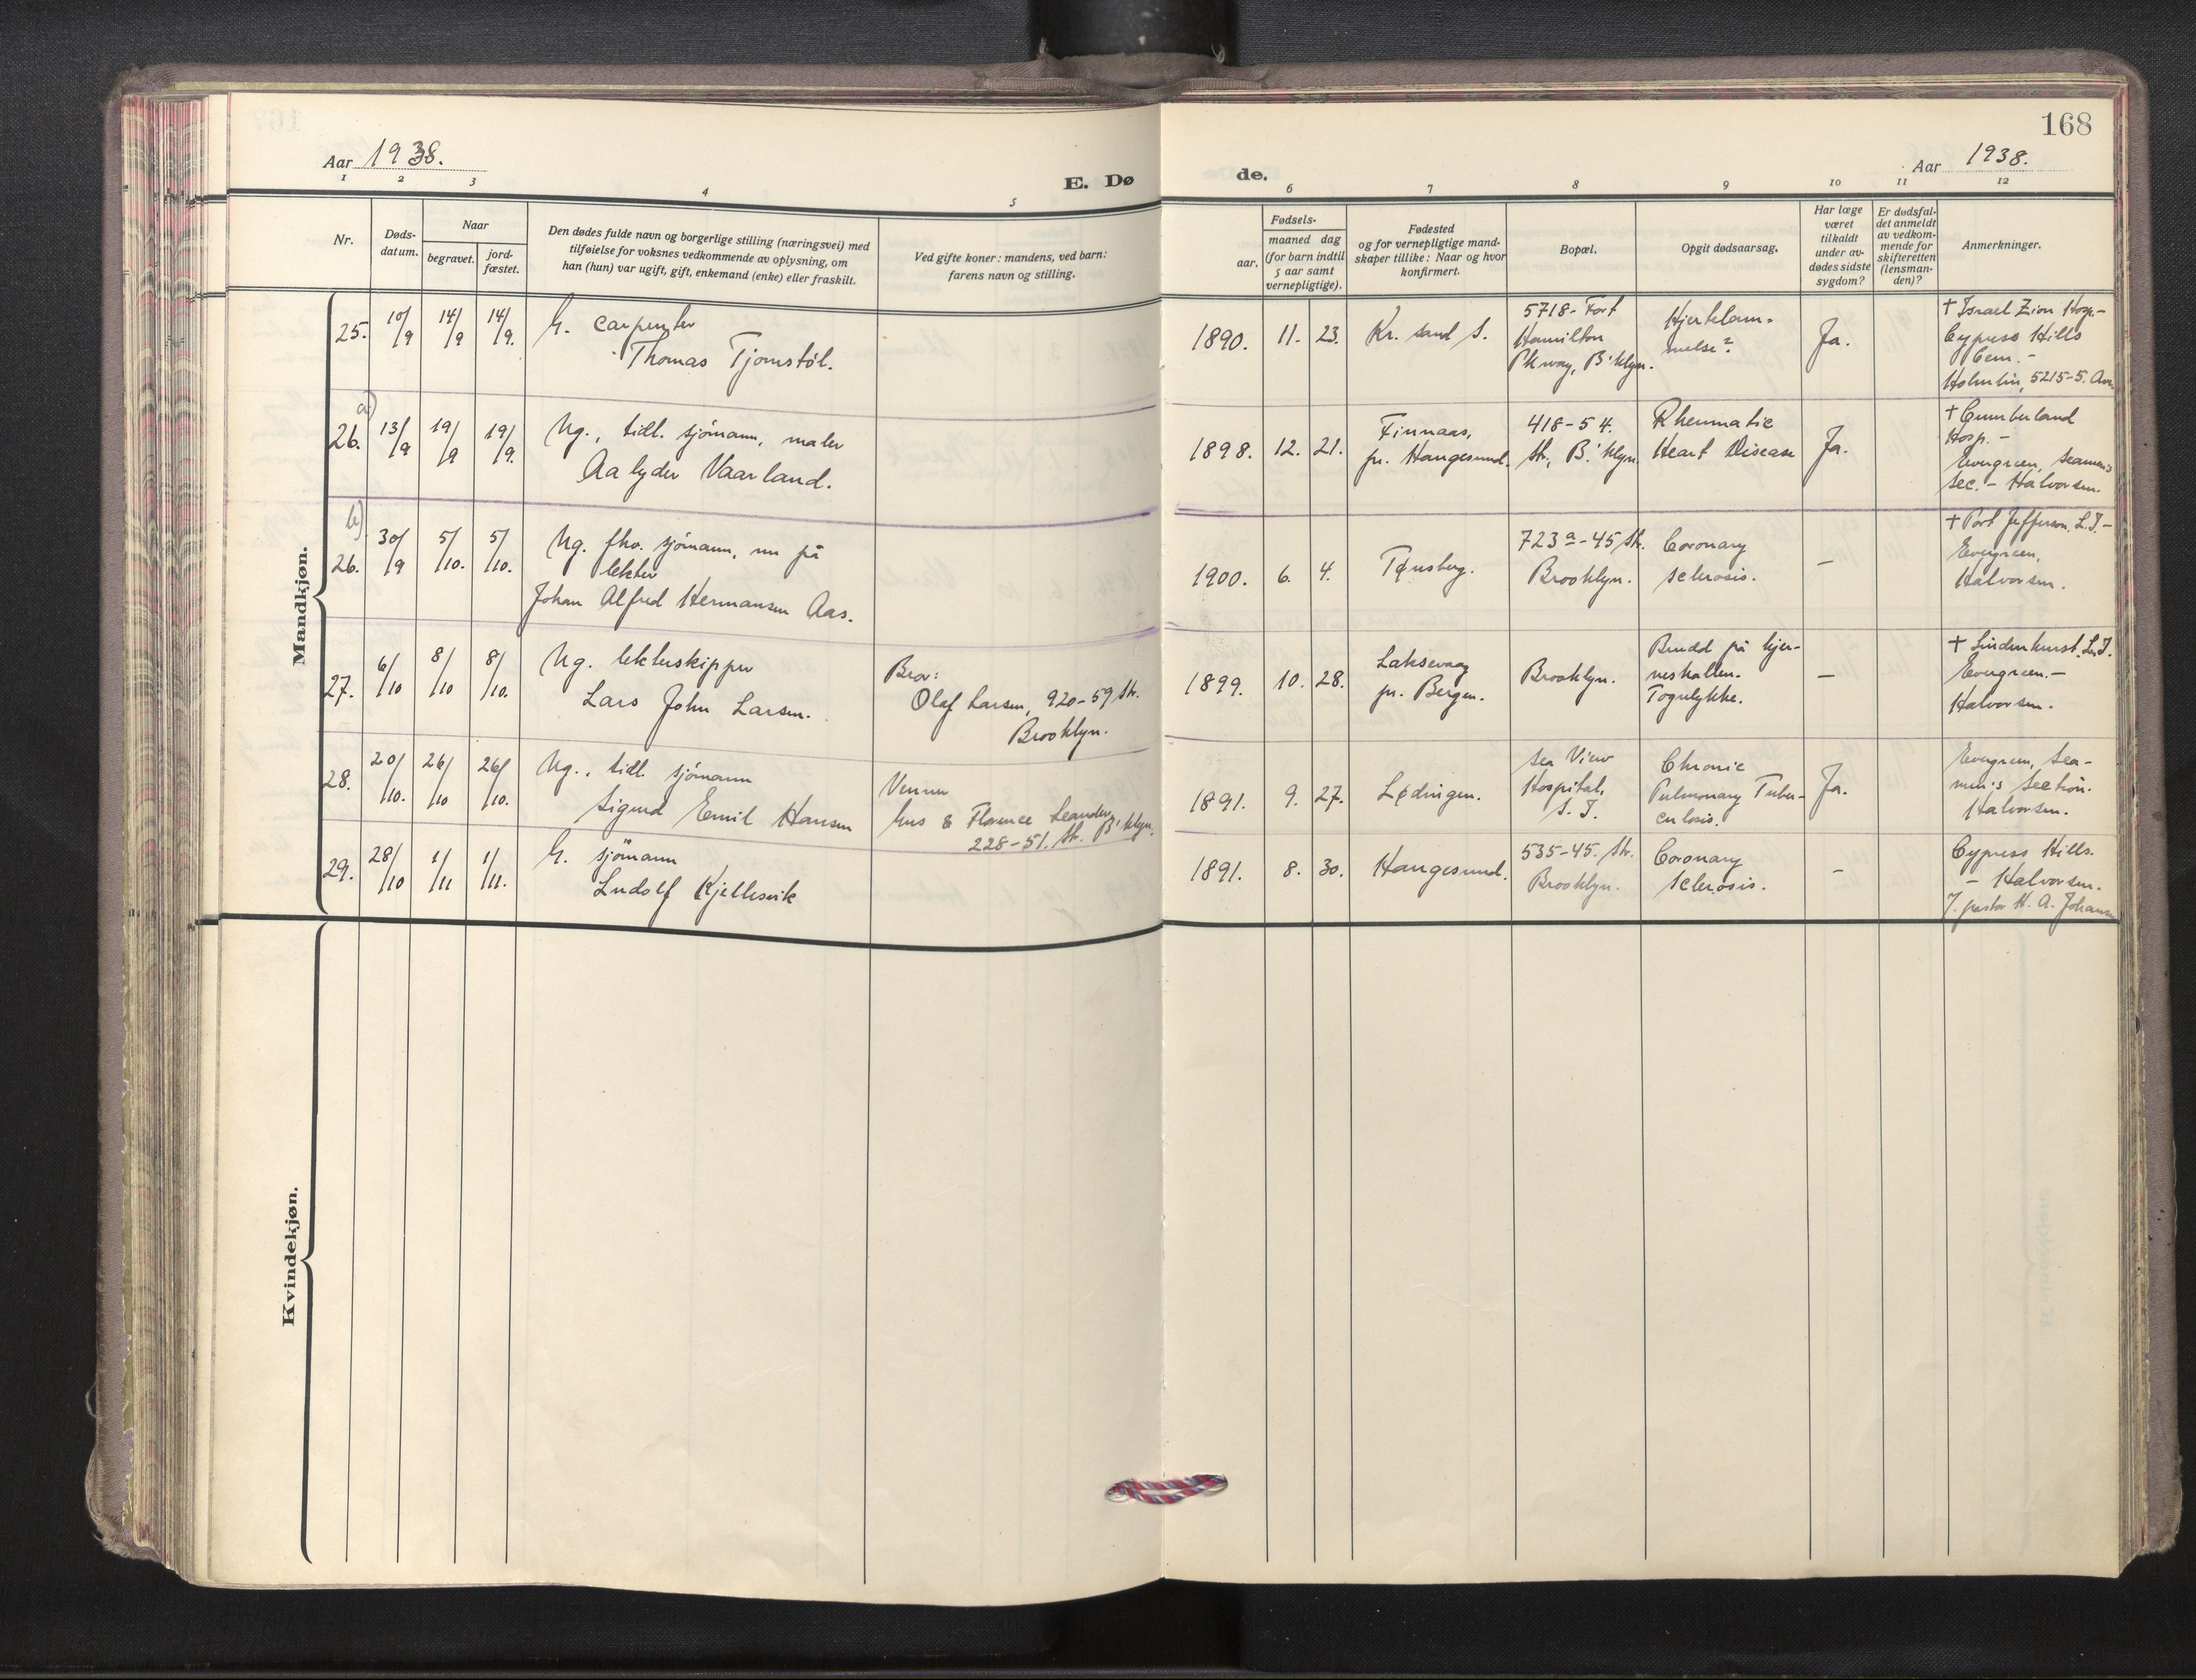 168
Aar 1938.
Aar 1938.
1 2 3 4 5 6 7 8 9 10 11 12
E. Dø de.
Nr.
Døds-
datum.
Naar
begravet.
jord-
fæstet.
Den dødes fulde navn og borgerlige stilling (næringsvei) med
tilføielse for voksnes vedkommende av oplysning, om
han (hun) var ugift, gift, enkemand (enke) eller fraskilt.
Ved gifte koner: mandens, ved barn:
farens navn og stilling.
Fødsels-
aar.
maaned dag
(for barn indtil
5 aar samt
vernepligtige).
Fødested
og for vernepligtige mand-
skaper tillike: Naar og hvor
konfirmert.
Bopæl.
Opgit dødsaarsag.
Har læge
været
tilkaldt
under av-
dødes sidste
sygdom?
Er dødsfal-
det anmeldt
av vedkom-
mende for
skifteretten
(lensman-
den)?
Anmerkninger.
Mandkjøn.
25.
10/9
14/9
14/9.
G. carpenter
Thomas Tjomstøl.
1890.
11.
23.
Kr. sand S.
5718-Fort
Hamilton
Pkway, B'klyn.
Hjertelam-
melse?
Ja.
+ Israel Zion Hosp.-
Cypress Hills
Cem.-
Holmlin, 5215-5. Ave.
a)
26.
13/9
19/9
19/9.
Ug., tidl. sjömann, maler
Aalyder Vaarland.
1898.
12.
21.
Finnaas,
pr. Haugesund.
418-54.
Str., B.'klyn.
Rheumatic
Heart Disease
Ja.
+ Cumberland
Hosp.-
Evergreen, Seamen's
sec. - Halvorsen.
b)
26.
30/9
5/10.
5/10.
Ug. fhv. sjömann, nu på
lekter
Johan Alfred Hermansen Aas.
1900.
6.
4.
Tønsberg.
723a-45 Str.
Brooklyn.
Coronary
sclerosis.
-
+ Port Jefferson, L.I.-
Evergreen,
Halvorsen.
27.
6/10
8/10
8/10.
Ug. lekterskipper
Lars John Larsen.
Bror:
Olaf Larsen, 920-59 Str.
Brooklyn.
1899.
10.
28.
Laksevaag
pr. Bergen.
Brooklyn.
Brudd på hjer-
neskallen.
Togulykke.
-
+ Lindenhurst, L.I.
Evergreen.-
Halvorsen.
28.
20/10.
26/10
26/10.
Ug., tidl. sjömann
Sigurd Emil Hansen
Venner
Gus & Florence Leander,
228-51. Str. B'klyn.
1891.
9.
27.
Lødingen.
Sea View
Hospital,
S. I.
Chronic
Pulmonary Tuber-
culosis.
Ja.
Evergreen, Sea-
men's Section.
Halvorsen.
29.
28/10
1/11
1/11.
G. sjömann
Ludolf Kjellesvik
1891.
8.
30.
Haugesund.
535-45. Str.
Brooklyn.
Coronary
sclerosis.
-
Cypress Hills.
- Halvorsen.
J. pastor H. A. Johansen
Kvindekjøn.